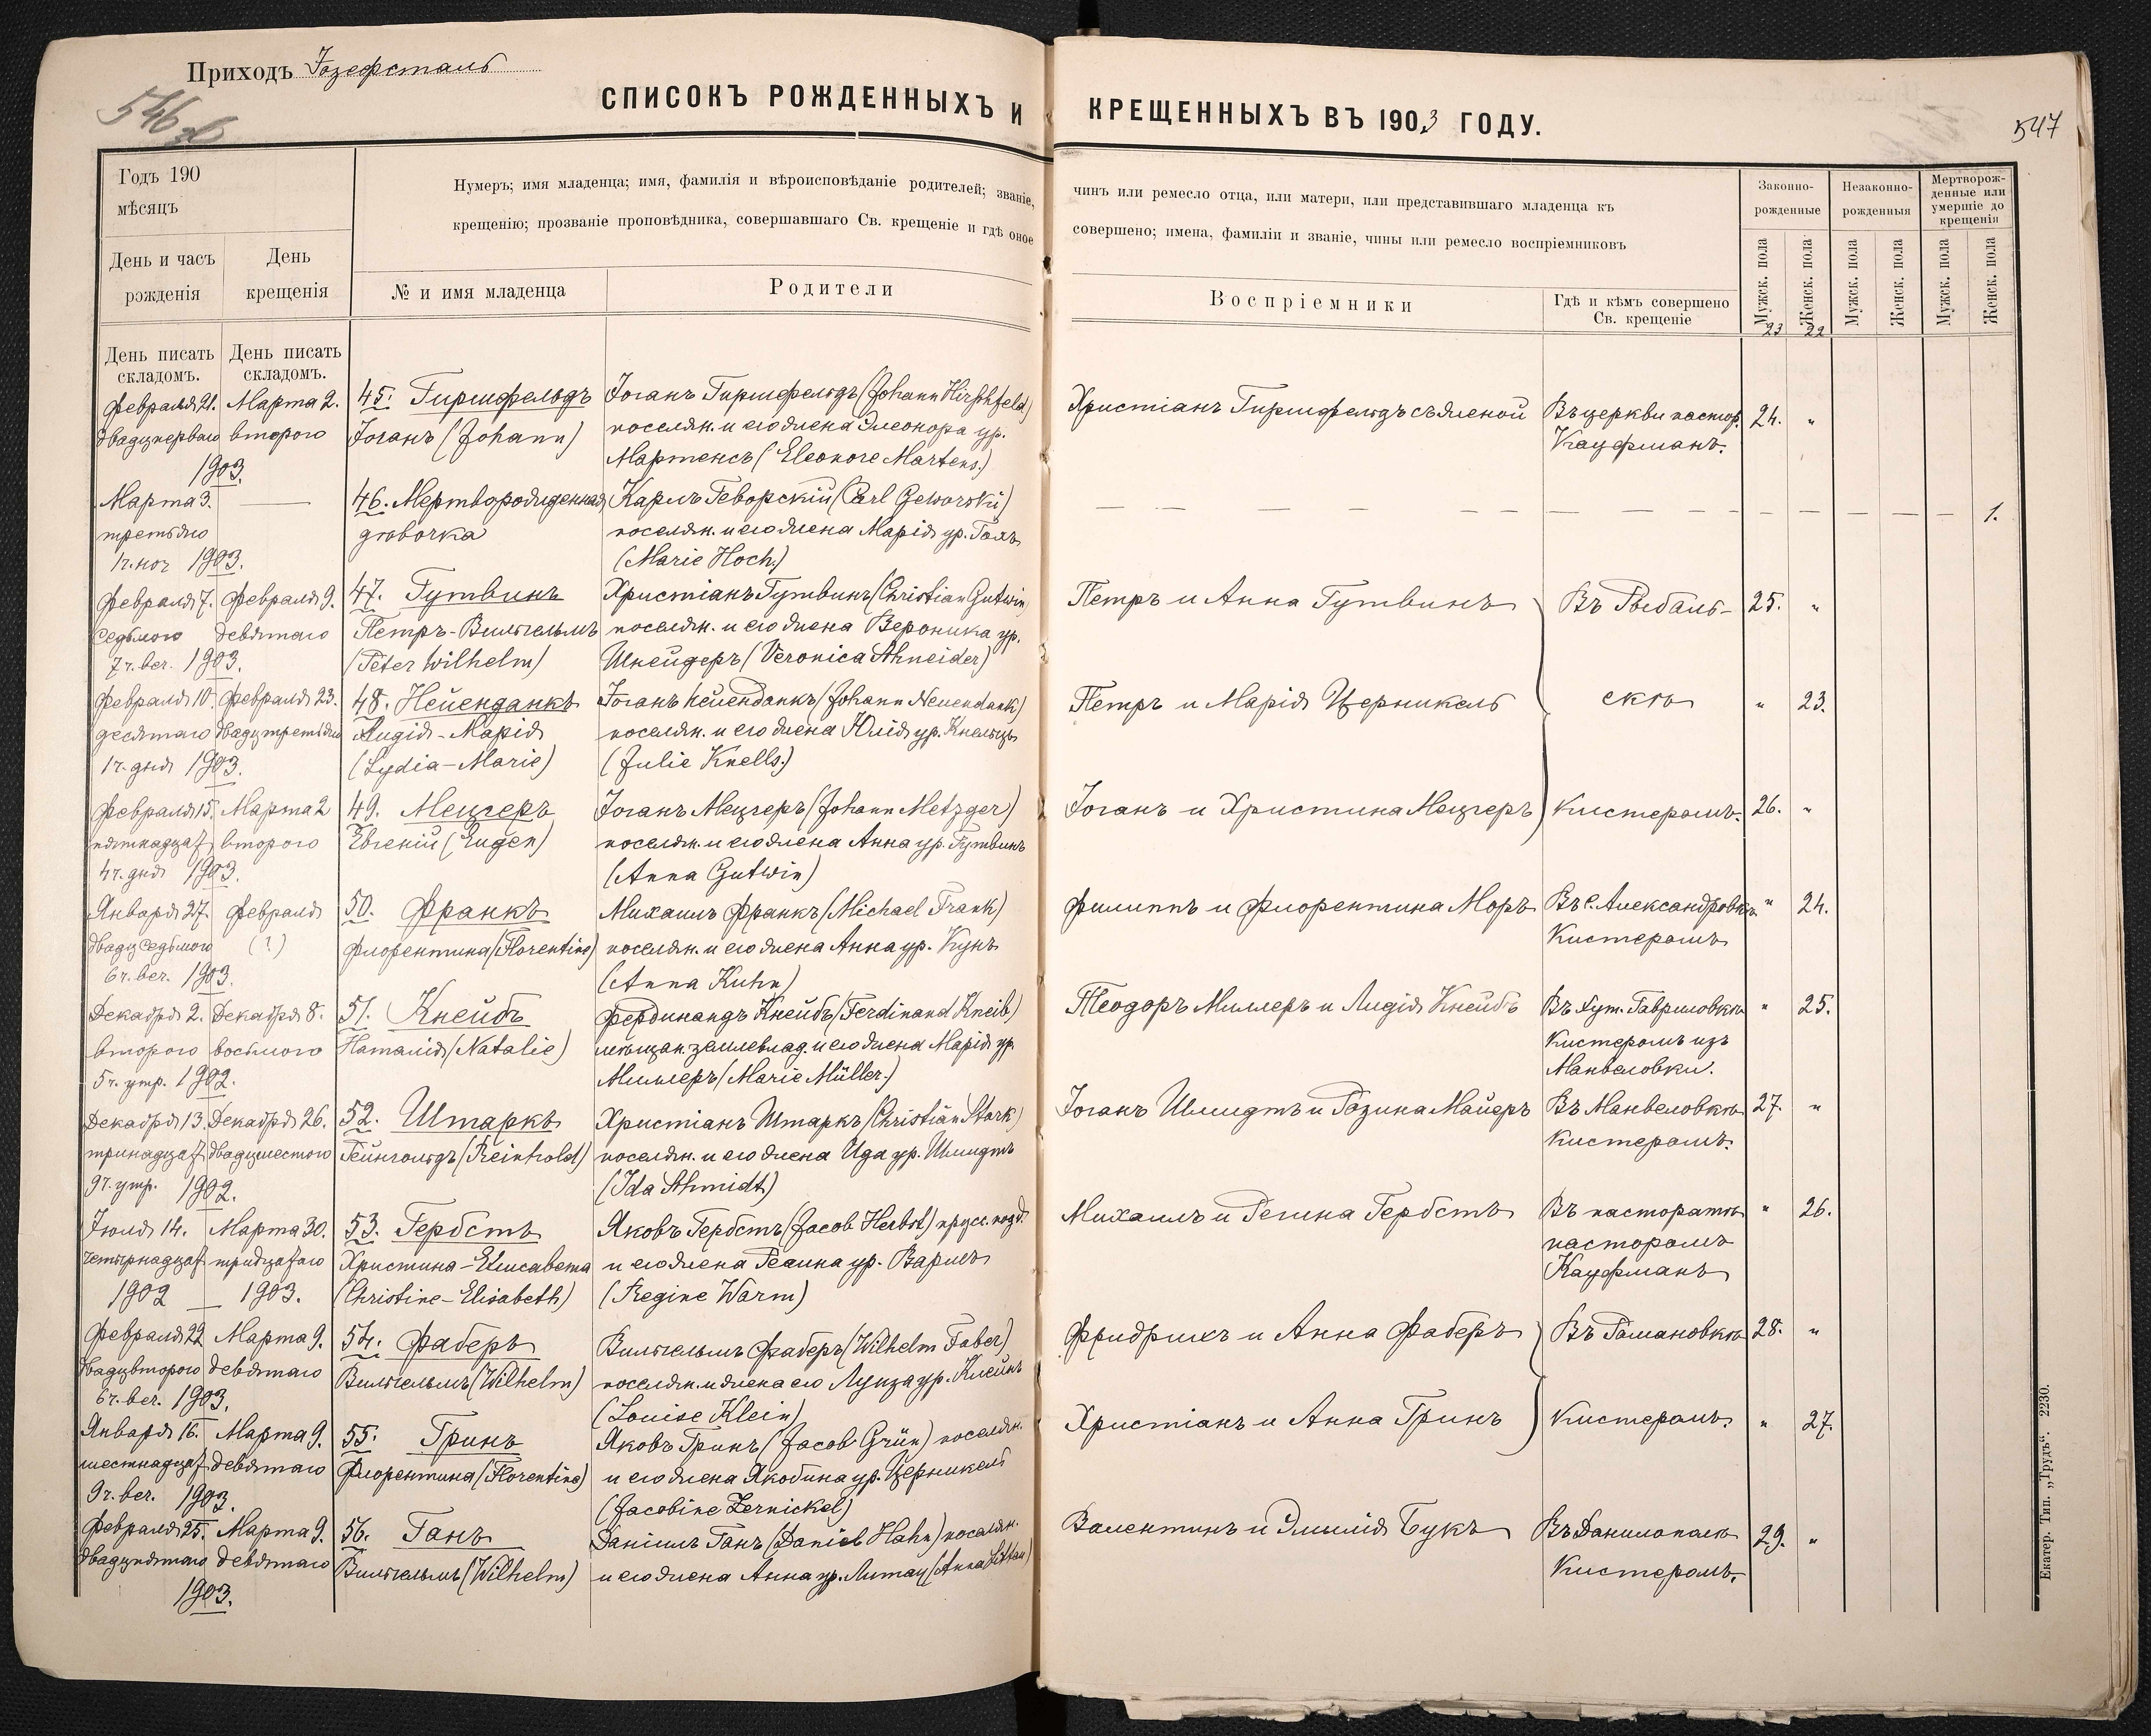 Приходъ Іозефсталь
546 об
СПИСОКЪ РОЖДЕННЫХЪ И КРЕЩЕННЫХЪ ВЪ 1903 ГОДУ.
547
Годъ 190
мѣсяцъ
День и часъ рожденія
День крещенія
Нумеръ; имя младенца; имя, фамилія и вѣроисповѣданіе родителей; званіе, чинъ или ремесло отца, или матери, или представившаго младенца къ
крещенію; прозваніе проповѣдника, совершавшаго Св. крещеніе и гдѣ оное совершено; имена, фамиліи и званіе, чины или ремесло воспріемниковъ
№ и имя младенца
Родители
Воспріемники
Гдѣ и кѣмъ совершено
Св. крещеніе
Законно-
рожденные
Незаконно-
рожденныя
Мертворож-
денные или
умершіе до
крещенія
Мужск. пола
Женск. пола
Мужск. пола
Женск. пола
Мужск. пола
Женск. пола
23 22
День писать
складомъ.
День писать
складомъ.
Февраля 21. Марта 2. 45. Гиршфельдъ Іоганъ Гиршфельдъ (Johann Hirschfeld) Христіанъ Гиршфельдъ съ женой Въ церкви пастор. 24. "
двадцперваго второго Іоганъ (Johann) поселян. и его жена Элеонора ур. Кауфманъ.
1903. Мартенсъ (Eleonore Martens.)
Марта 3. — 46. Мертворожденная Карлъ Геворскій (Carl Geworski) — 1.
третьяго дѣвочка поселян. и его жена Марія ур. Гохъ
1 ч. ноч 1903. (Marie Hoch.)
Февраля 7. Февраля 9. 47. Гутвинъ Христіанъ Гутвинъ (Christian Gutwin) Петръ и Анна Гутвинъ Въ Рыбаль- 25. "
седьмого девятаго Петръ-Вильгельмъ поселян. и его жена Вероника ур.
7 ч. веч. 1903. (Peter Wilhelm) Шнейдеръ (Veronica Schneider)
Февраля 10. Февраля 23. 48. Нейенданкъ Іоганъ Нейенданкъ (Johann Neuendank) Петръ и Марія Церникель скѣ " 23.
десятаго двадцтретьяго Лидія-Марія поселян. и его жена Юлія ур. Кнельсъ
1 ч. дня 1903. (Lydia-Marie) (Julie Knells.)
Февраля 15. Марта 2 49. Мецгеръ Іоганъ Мецгеръ (Johann Metzger) Іоганъ и Христина Мецгеръ Кистеромъ. 26. "
пятнадцат второго Евгеній (Eugen) поселян. и его жена Анна ур. Гутвинъ
4 ч. дня 1903. (Anna Gutwin)
Января 27. Февраля 50. Франкъ Михаилъ Франкъ (Michael Frank) Филиппъ и Флорентина Моръ Въ с. Александровкѣ " 24.
двадцседьмого (?) Флорентина (Florentine) поселян. и его жена Анна ур. Кунъ Кистеромъ
6 ч. веч. 1903. (Anna Kuhn)
Декабря 2. Декабря 8. 51. Кнейбъ Фердинандъ Кнейбъ (Ferdinand Kneib) Теодоръ Миллеръ и Лидія Кнейбъ Въ хут. Гавриловкѣ " 25.
второго восьмого Наталія (Natalie) мѣщан. землевлад. и его жена Марія ур. Кистеромъ изъ
5 ч. утр. 1902. Миллеръ (Marie Müller.) Манвеловки.
Декабря 13. Декабря 26. 52. Штаркъ Христіанъ Штаркъ (Christian Stark) Іоганъ Шмидтъ и Розина Майеръ Въ Манвеловкѣ 27. "
тринадцат двадцшестого Рейнгольдъ (Reinhold) поселян. и его жена Ида ур. Шмидтъ Кистеромъ.
9 ч. утр. 1902. (Ida Schmidt)
Іюля 14. Марта 30. 53. Гербстъ Яковъ Гербстъ (Jacob Herbst) прусс. подд. Михаилъ и Регина Гербстъ Въ пасторатѣ " 26.
четырнадцат тридцатаго Христина-Елисавета и его жена Регина ур. Вармъ пасторомъ
1902 — 1903. (Christine-Elisabeth) (Regine Warm) Кауфманъ
Февраля 22 Марта 9. 54. Фаберъ Вильгельмъ Фаберъ (Wilhelm Faber) Фридрихъ и Анна Фаберъ Въ Романовкѣ 28. "
двадцвторого девятаго Вильгельмъ (Wilhelm) поселян. и жена его Луиза ур. Клейнъ
6 ч. веч. 1903. (Louise Klein)
Января 16. Марта 9. 55. Гринъ Яковъ Гринъ (Jacob Grün) поселян. Христіанъ и Анна Гринъ Кистеромъ. " 27.
шестнадцат девятаго Флорентина (Florentine) и его жена Якобина ур. Церникель
9 ч. веч. 1903. (Jacobine Zernickel)
Февраля 25. Марта 9. 56. Ганъ Даніилъ Ганъ (Daniel Hahn) поселян. Валентинъ и Эмилія Букъ Въ Данилополѣ 29. "
двадцпятаго девятаго Вильгельмъ (Wilhelm) и его жена Анна ур. Литау (Anna Littau) Кистеромъ.
1903.
Екатер. Тип. „Трудъ“. 2230.